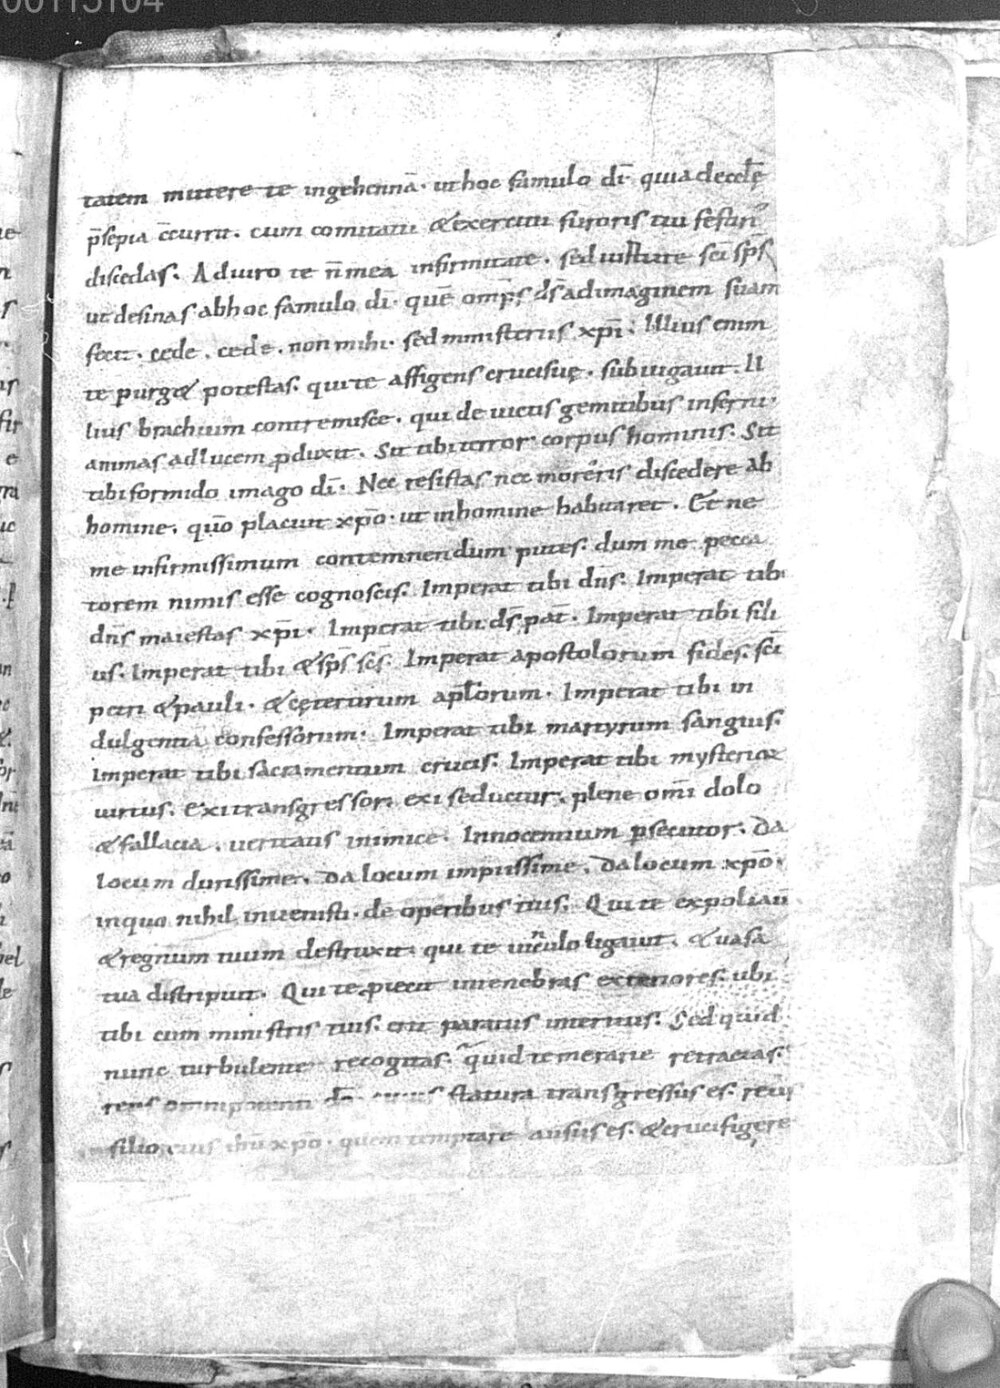 00115104
tatem mittere te ingehennā · uthoc famulo dī· quiadecclę
p̄sepia c̄currit. cum comitatu &exercitu furoris tui festin̄
discedas. Adiuro te n̄ mea infirmitate. sed uirtute sc̄i sp̄s
ut desinas abhoc famulo dī· quē omp̄s d̄s adimaginem suam
fecit. cede. cede. non mihi. sed ministeriis xp̄i. Illius enim
te purg& potestas. qui te affigens crucisuę. subiugauit. Il
lius brachium contremisce. qui deuictis gemitibus inferni.
animas adlucem pduxit. Sit tibi terror corpus hominis. Sit
tibi formido imago dī. Nec resistas nec moreris discedere ab
homine. quō placuit xp̄o. ut inhomine habitaret. Et ne
me infirmissimum contemnendum putes. dum me pecca
torem nimis esse cognoscis. Imperat tibi dn̄s. Imperat tibi
dn̄s maiestas xp̄i. Imperat tibi d̄s pat̄. Imperat tibi fili
us. Imperat tibi &sp̄s sc̄s. Imperat apostolorum fides. sc̄i
petri &pauli. &ceterorum apl̄orum. Imperat tibi in
dulgentia confessorum. Imperat tibi martyrum sanguis.
Imperat tibi sacramentum crucis. Imperat tibi mysteriorę
uirtus. Exi transgressor. exi seductor. plene om̄i dolo
&fallacia. ueritatis inimice. Innocentium psecutor. Da
locum durissime. Da locum impiissime. Da locum xp̄o.
inquo nihil inuenisti. de operibus tuis. Qui te expoliauit
&regnum tuum destruxit. qui te uinculo ligauit. &uasa
tua distripuit. Qui te piecit intenebras exteriores. ubi
tibi cum ministris tuis. erit paratus interitus. Sed quid
nunc turbulente recogitas. quid temerarie retractas.
reus omnipotenti dō. cuius statura transgressus es. reus
filio eius ihū xp̄o. quem temptare ausus es. &crucifigere